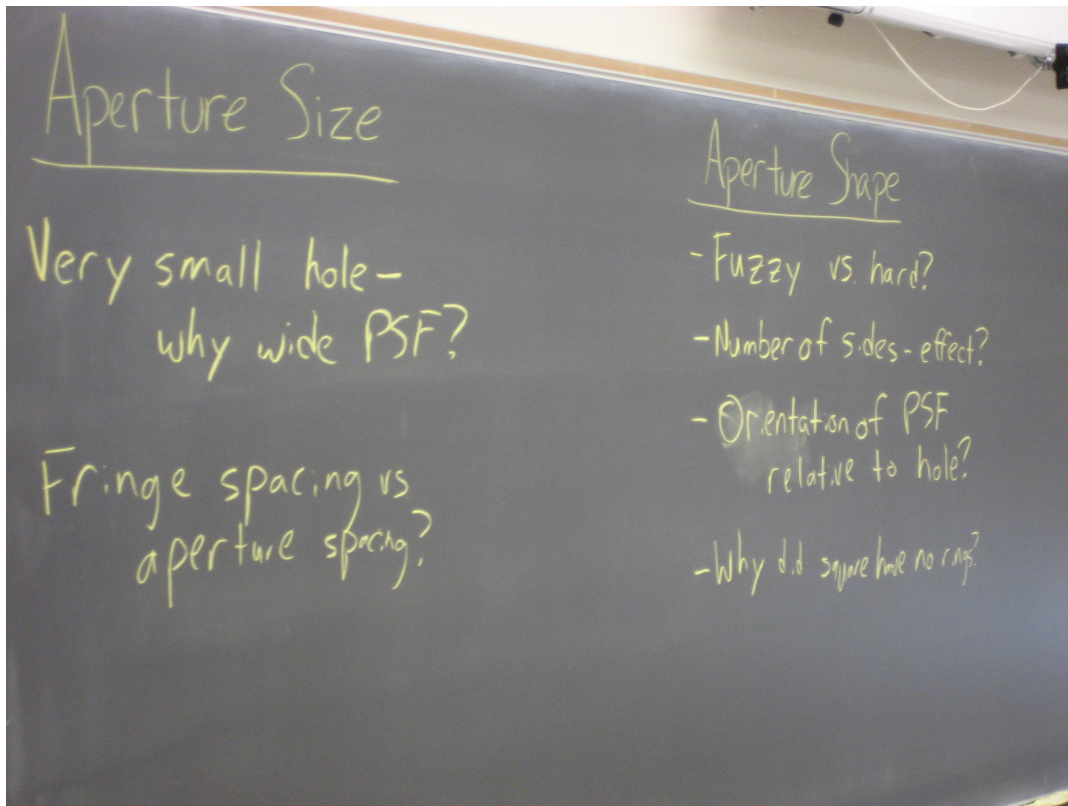 Aperture Size
Very small hole-
why wide PSF?
Fringe spacing vs
aperture spacing?
Aperture Shape
- Fuzzy vs. hard?
- Number of sides - effect?
- Orientation of PSF
relative to hole?
- Why did square have no rings?